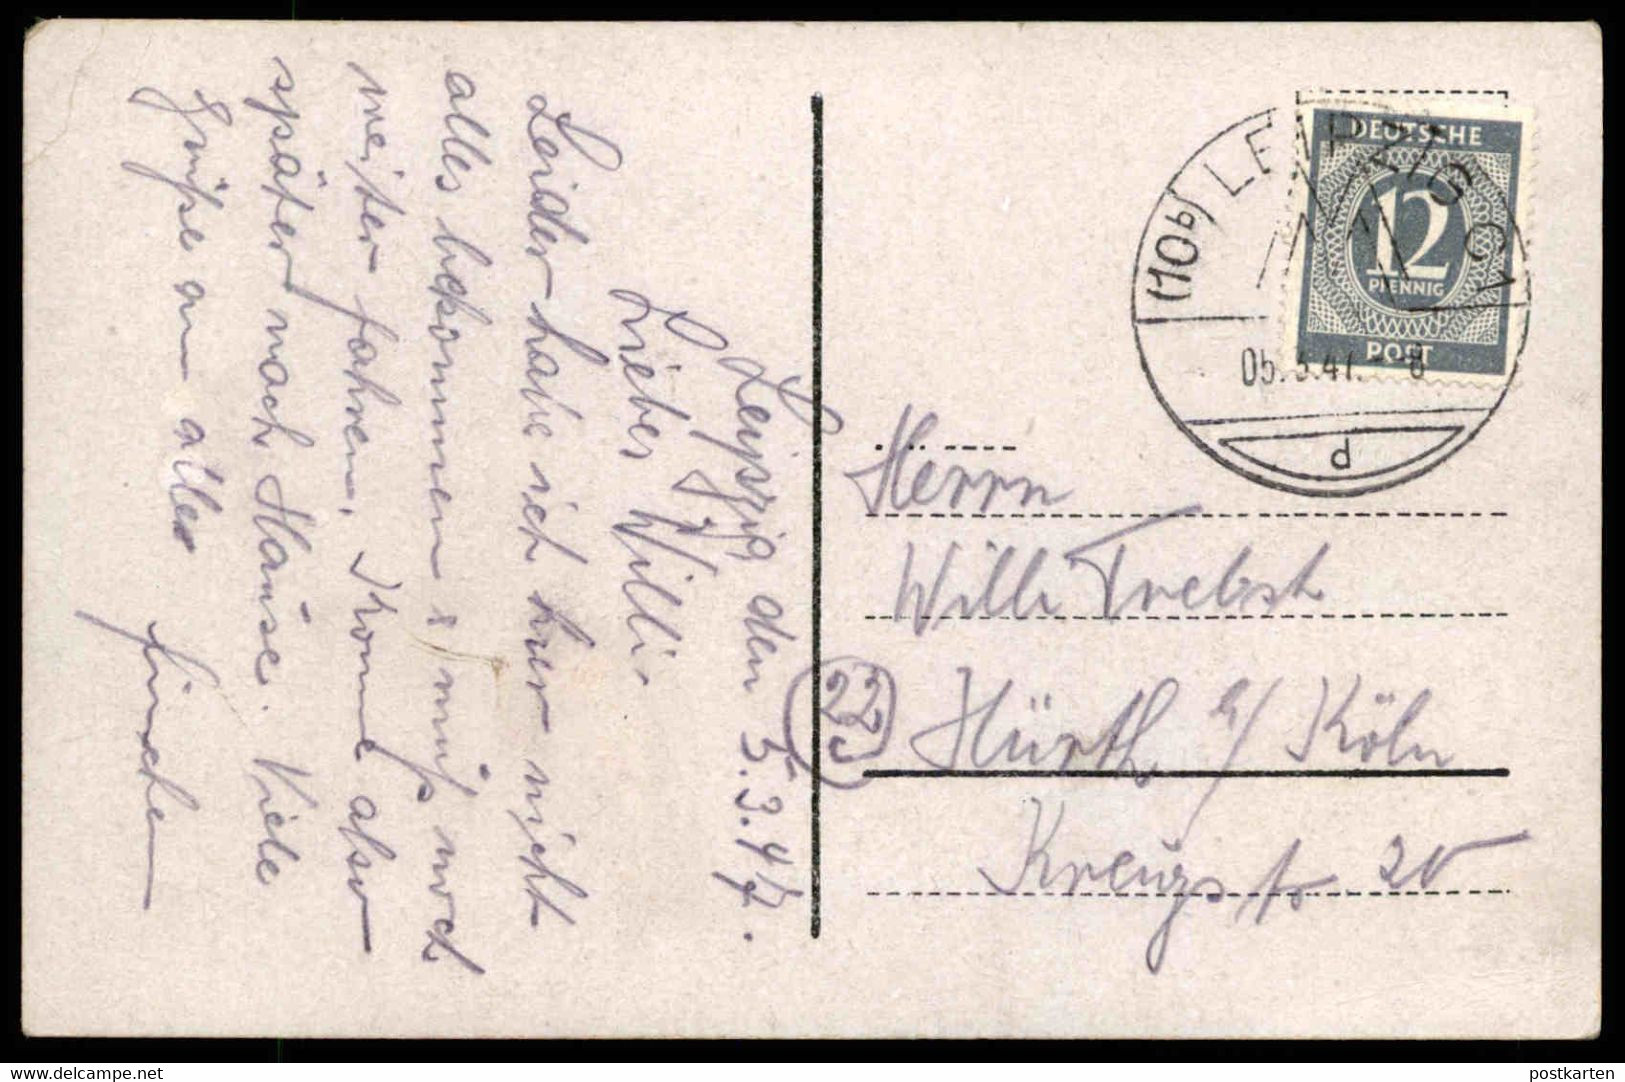 Leipzig den 5.3.47.
Lieber Willi.
Leider habe ich hier nicht
alles bekommen & muß noch
weiter fahren. Komme also
später nach Hause. Viele
Grüße an alle
(10b) LEIPZIG C1
05.3.47.-8
d
DEUTSCHE
12
PFENNIG
POST
Herrn
Willi Trebst
22c
Hürth b/ Köln
Kreuzstr 20
delcampe.net
postkarten